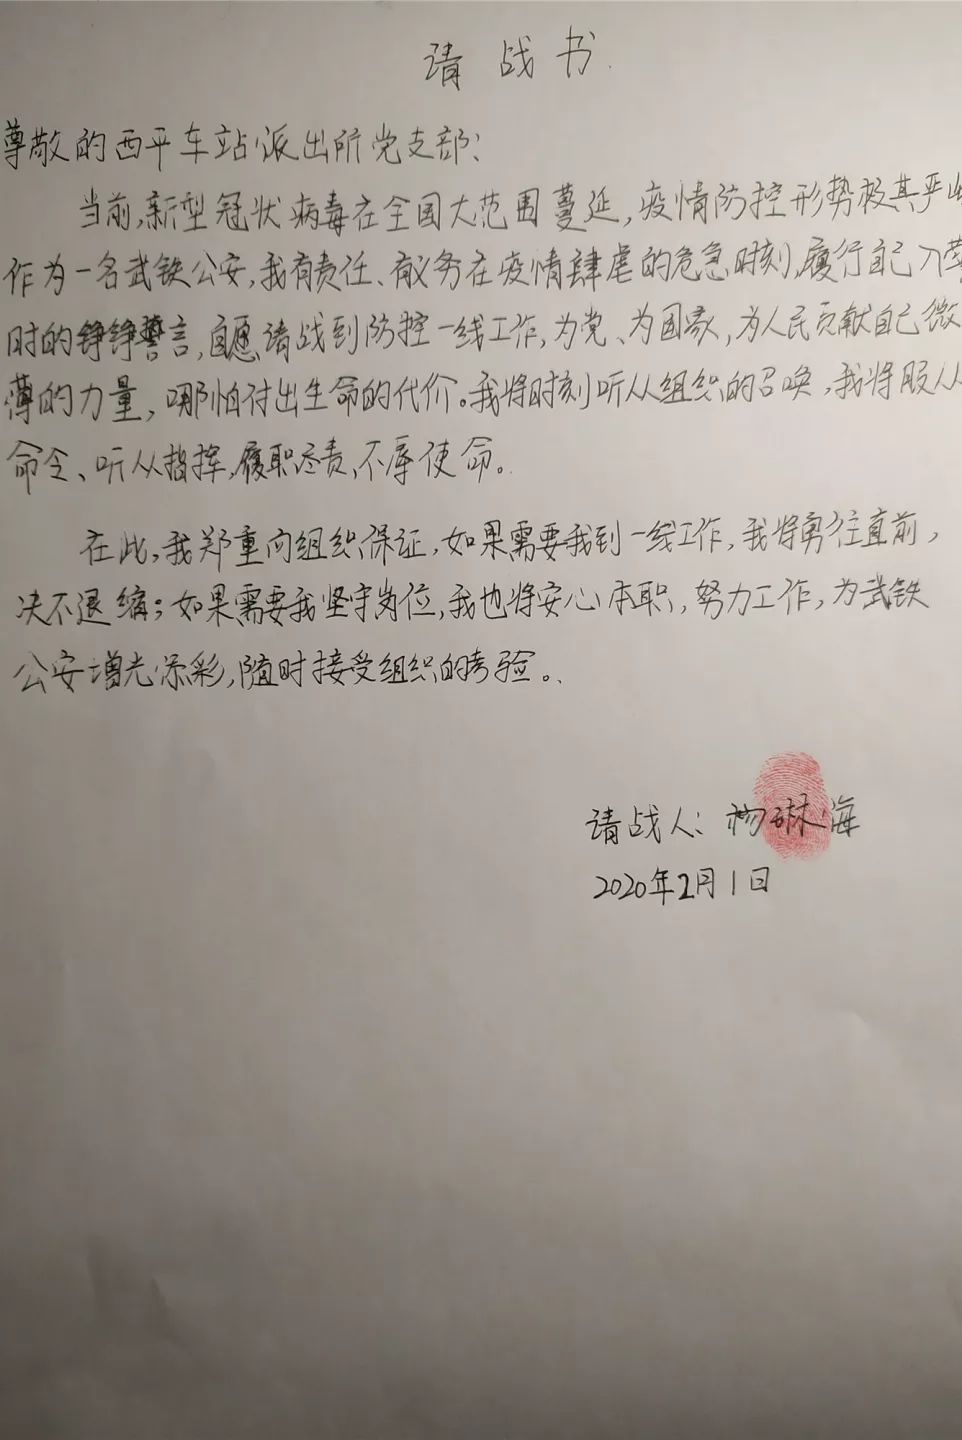 请战书
尊敬的西平车站派出所党支部：
当前，新型冠状病毒在全国大范围蔓延，疫情防控形势极其严峻
作为一名武铁公安，我有责任、有义务在疫情肆虐的危急时刻，履行自己入党
时的铮铮誓言，自愿请战到防控一线工作，为党、为国家，为人民贡献自己微
薄的力量，哪怕付出生命的代价。我将时刻听从组织的召唤，我将服从
命令、听从指挥，履职尽责，不辱使命。
在此，我郑重向组织保证，如果需要我到一线工作，我将勇往直前，
决不退缩；如果需要我坚守岗位，我也将安心本职，努力工作，为武铁
公安增光添彩，随时接受组织的考验。
请战人：杨琳海
2020年2月1日